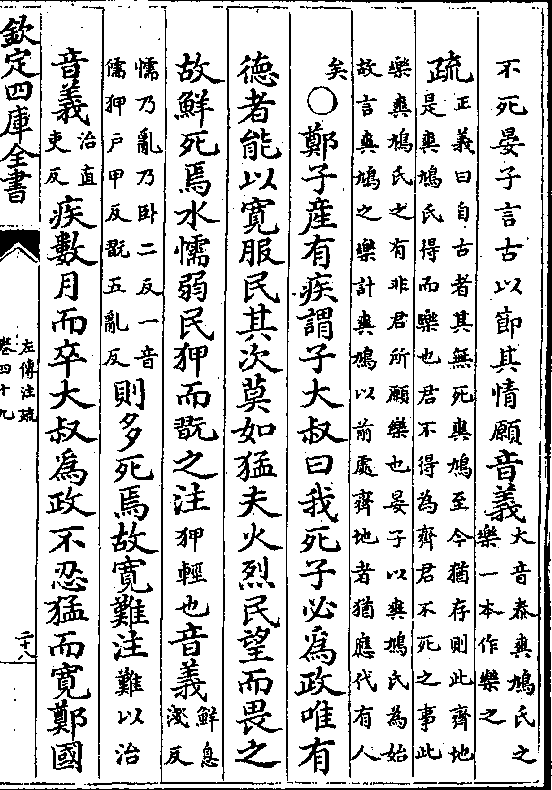 不死晏子言古以節其情願音義大音泰爽鳩氏之
樂一本作樂之
疏正義曰自古者其無死爽鳩至今猶存則此齊地
是爽鳩氏得而樂也君不得為齊君不死之事此
樂爽鳩氏之有非君所願樂也晏子以爽鳩氏為始
故言爽鳩之樂計爽鳩以前處齊地者猶應代有人
矣○鄭子產有疾謂子大叔曰我死子必為政唯有
德者能以寬服民其次莫如猛夫火烈民望而畏之
故鮮死焉水懦弱民狎而翫之注狎輕也音義鮮息
淺反
懦乃亂乃卧二反一音
儒狎戶甲反翫五亂反則多死焉故寬難注難以治
音義治直
吏反疾數月而卒大叔為政不忍猛而寬鄭國
欽定四庫全書
左傳注疏
卷四十九
二十八